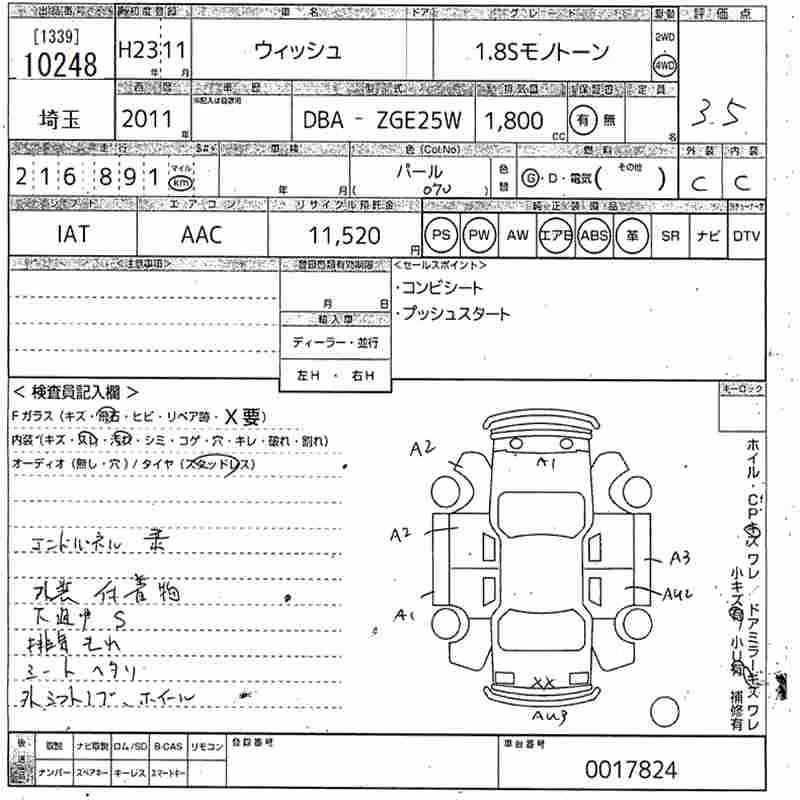 出品番号 初度登録 車名 ドア グレード 駆動 評価点
[1339] 10248 H23 11 年 月 ウィッシュ 1.8Sモノトーン 2WD 4WD 3.5
西暦 車歴 ※記入は自家用 型式 排気量 保証書 定員
埼玉 2011 年 DBA - ZGE25W 1,800 cc 有 無 名
走行 車検 色(Col.No) 燃料 外装 内装
216891 マイル km 年 月 パール ( 070 ) 色替 G・D・電気( その他 ) C C
シフト エアコン リサイクル預託金 純正装備品
IAT AAC 11,520 円 PS PW AW エアB ABS 革 SR ナビ DTV
<注意事項> 登録書類有効期限 <セールスポイント>
月 日 ・コンビシート
輸入車 ・プッシュスタート
ディーラー・並行
左H ・ 右H
< 検査員記入欄 > キーロック
Fガラス (キズ・飛石・ヒビ・リペア跡・X要)
内装 (キズ・・汚れ・シミ・コゲ・穴・キレ・破れ・割れ)
オーディオ (無し・穴) / タイヤ (スタッドレス)
A2
A1
A2
A3
AU2
A1
XX
AU3
付着物
下廻り S
排気もれ
シート ヘタリ
シフトノブ、ホイール
ホイル・CPキズ ワレ / ドアミラーキズ ワレ
小キズ有 / 小U有 補修有
後送品 取説 ナビ取説 ロム/SD B-CAS リモコン 登録番号 車台番号
ナンバー スペアキー キーレス スマートキー 0017824